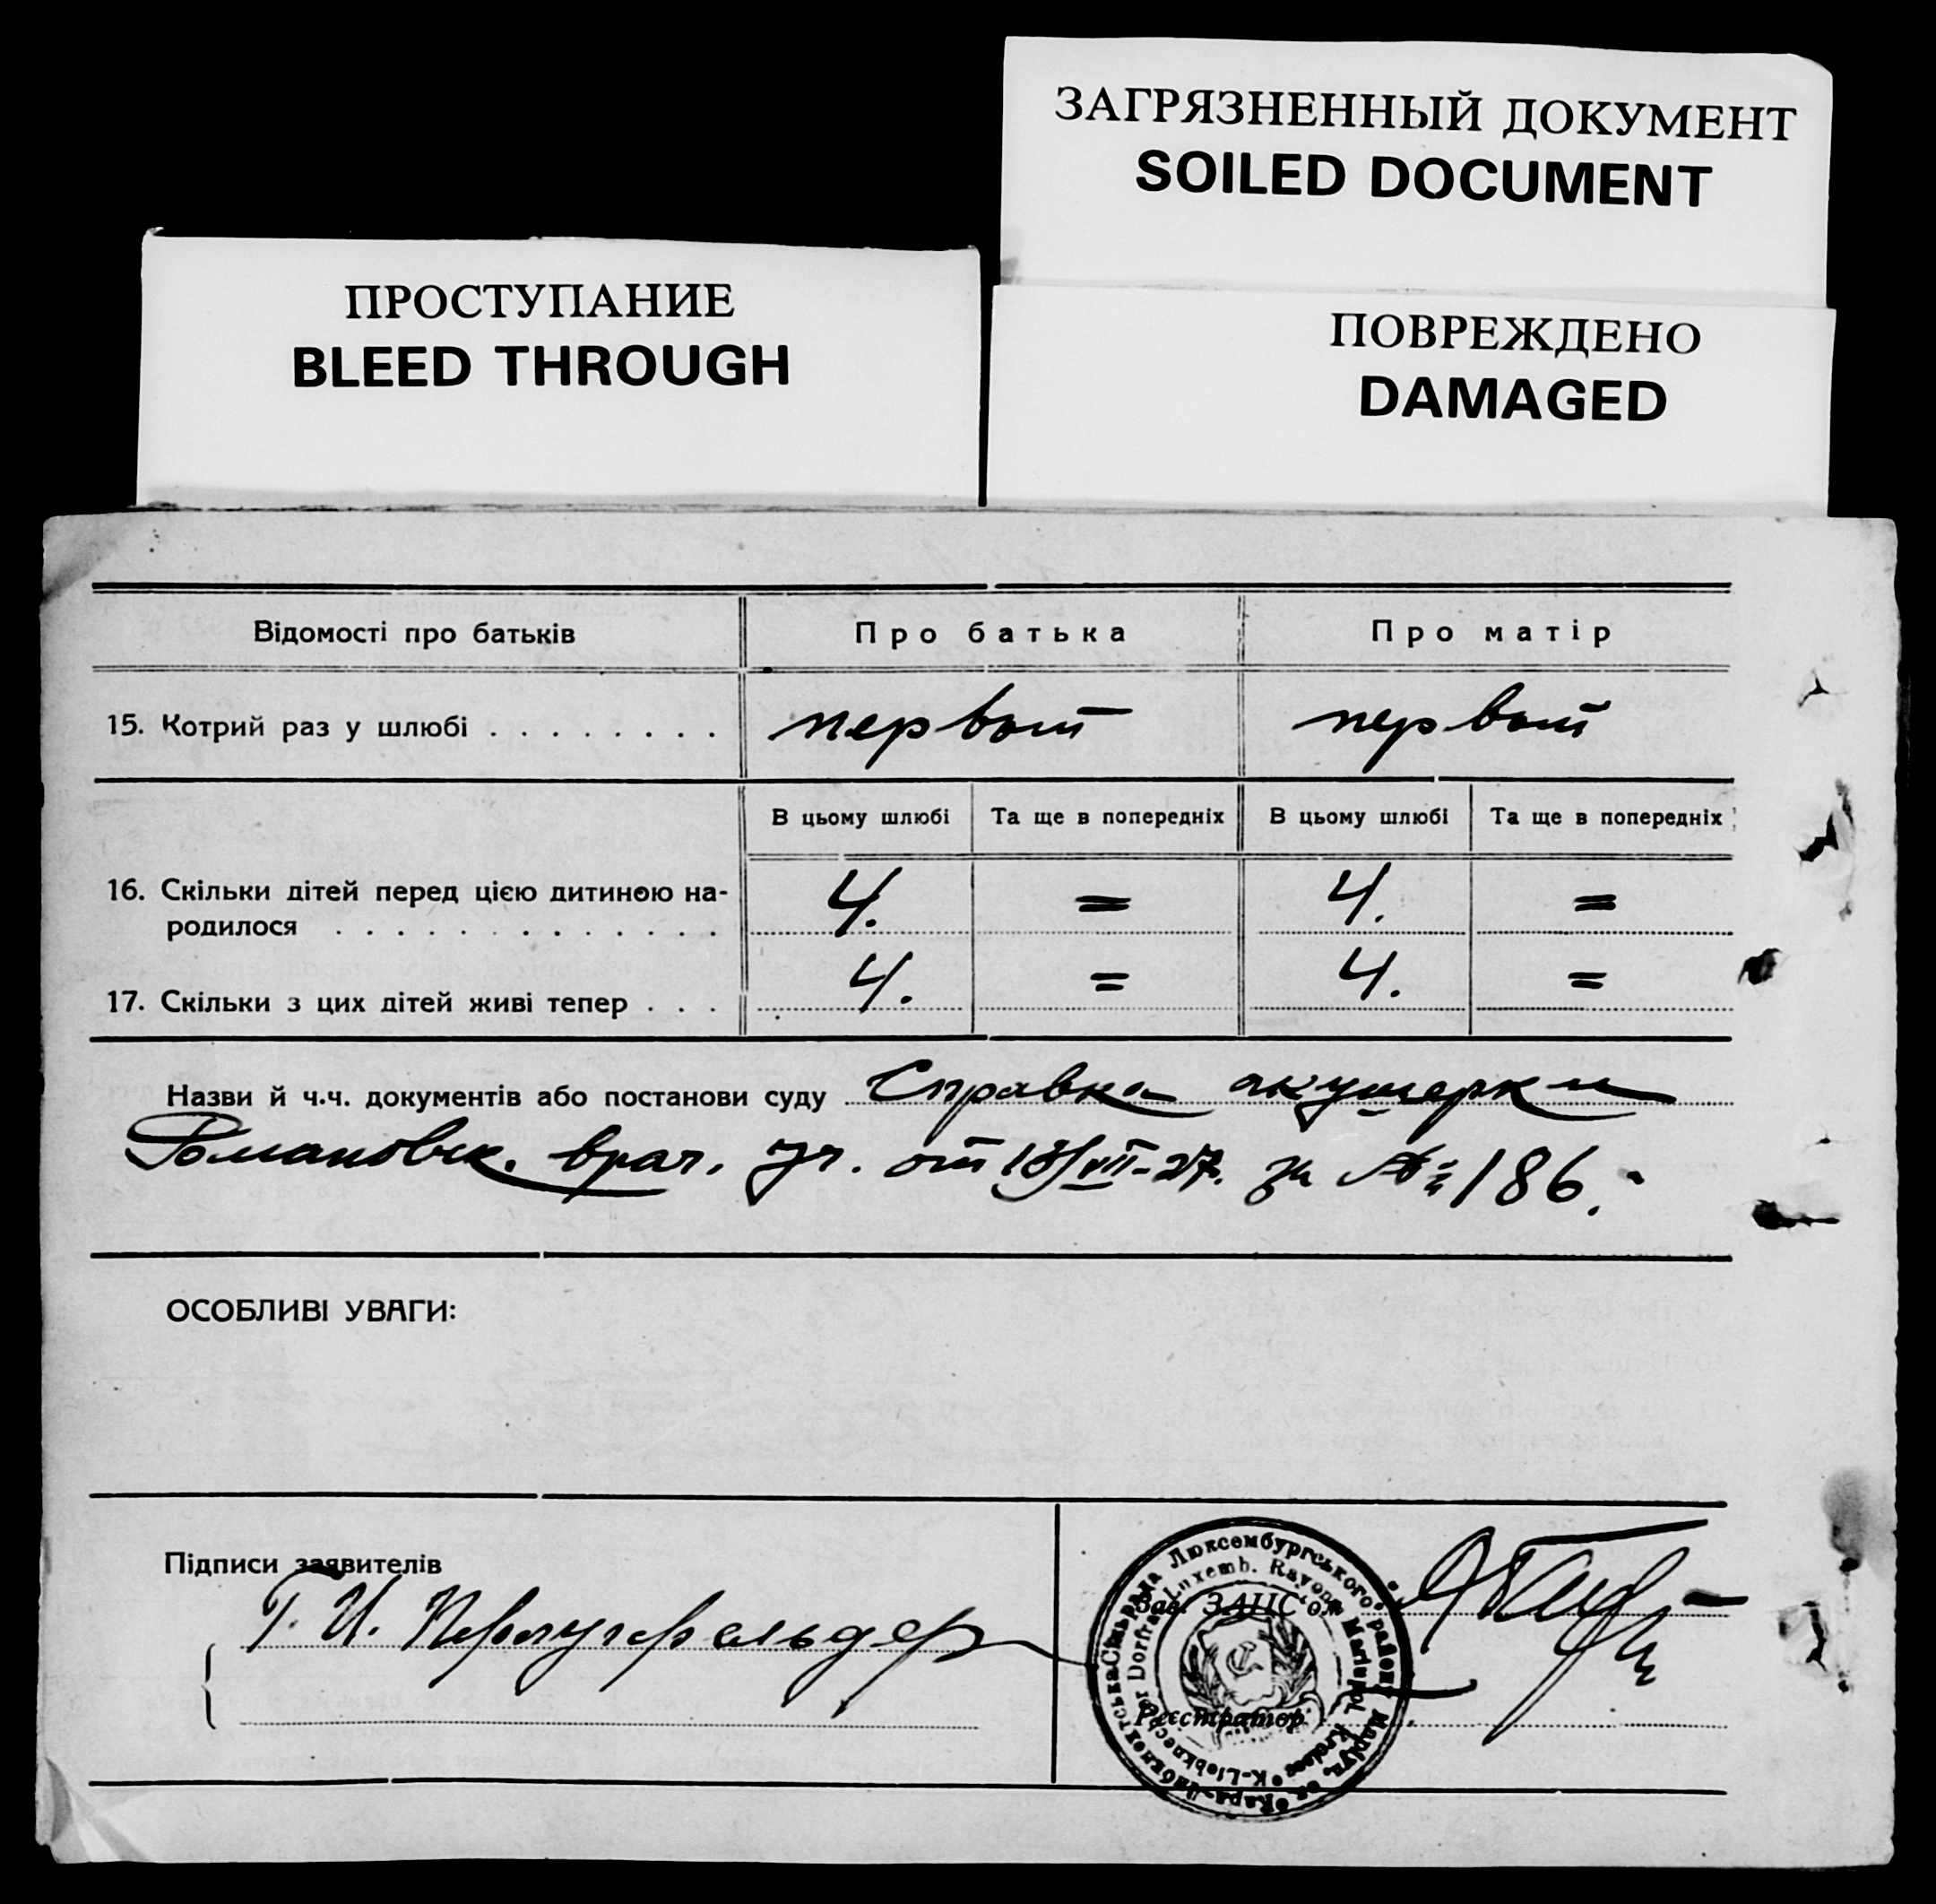 ЗАГРЯЗНЕННЫЙ ДОКУМЕНТ
SOILED DOCUMENT
ПРОСТУПАНИЕ
BLEED THROUGH
ПОВРЕЖДЕНО
DAMAGED
Відомості про батьків Про батька Про матір
15. Котрий раз у шлюбі . . . . . . . . первый первый
В цьому шлюбі Та ще в попередніх В цьому шлюбі Та ще в попередніх
16. Скільки дітей перед цією дитиною на-
родилося . . . . . . . . . . . . . 4. = 4. =
17. Скільки з цих дітей живі тепер . . . 4. = 4. =
Назви й ч.ч. документів або постанови суду Справка акушерки
Романовск. врач. уч. от VII-27. за № 186.
ОСОБЛИВІ УВАГИ:
Підписи заявителів
Г. И.
Зав. ЗАГС'ом
Реєстратор
Сільрада Люксембургського району Маріуп. ок. Карл-Лібкнехтська
Dorfrat Luxemb. Rayons Mariupol Kreises K-Liebknechter